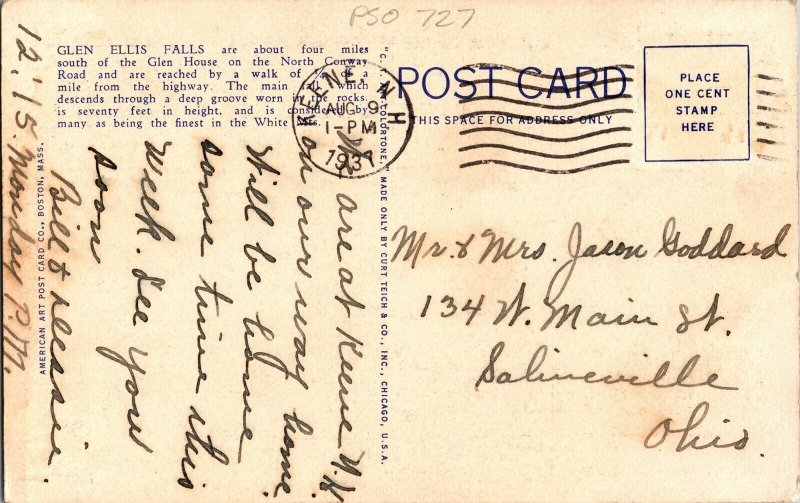 PSO 727
GLEN ELLIS FALLS are about four miles
south of the Glen House on the North Conway
Road and are reached by a walk of of a
mile from the highway. The main fall, which
descends through a deep groove worn in the rocks,
is seventy feet in height, and is considered by
many as being the finest in the White Mts.
KEENE, N.H.
AUG 9
1-PM
1937
POST CARD
THIS SPACE FOR ADDRESS ONLY
PLACE
ONE CENT
STAMP
HERE
"C.T. ART-COLORTONE," MADE ONLY BY CURT TEICH & CO., INC., CHICAGO, U.S.A.
AMERICAN ART POST CARD CO., BOSTON, MASS.
12:15. Monday P.M.
We are at Keene N.H.
on our way home.
Will be home
some time this
week. See you
soon
Bill & Dessie.
Mr. & Mrs. Jason Goddard
134 W. Main St.
Salineville
Ohio.